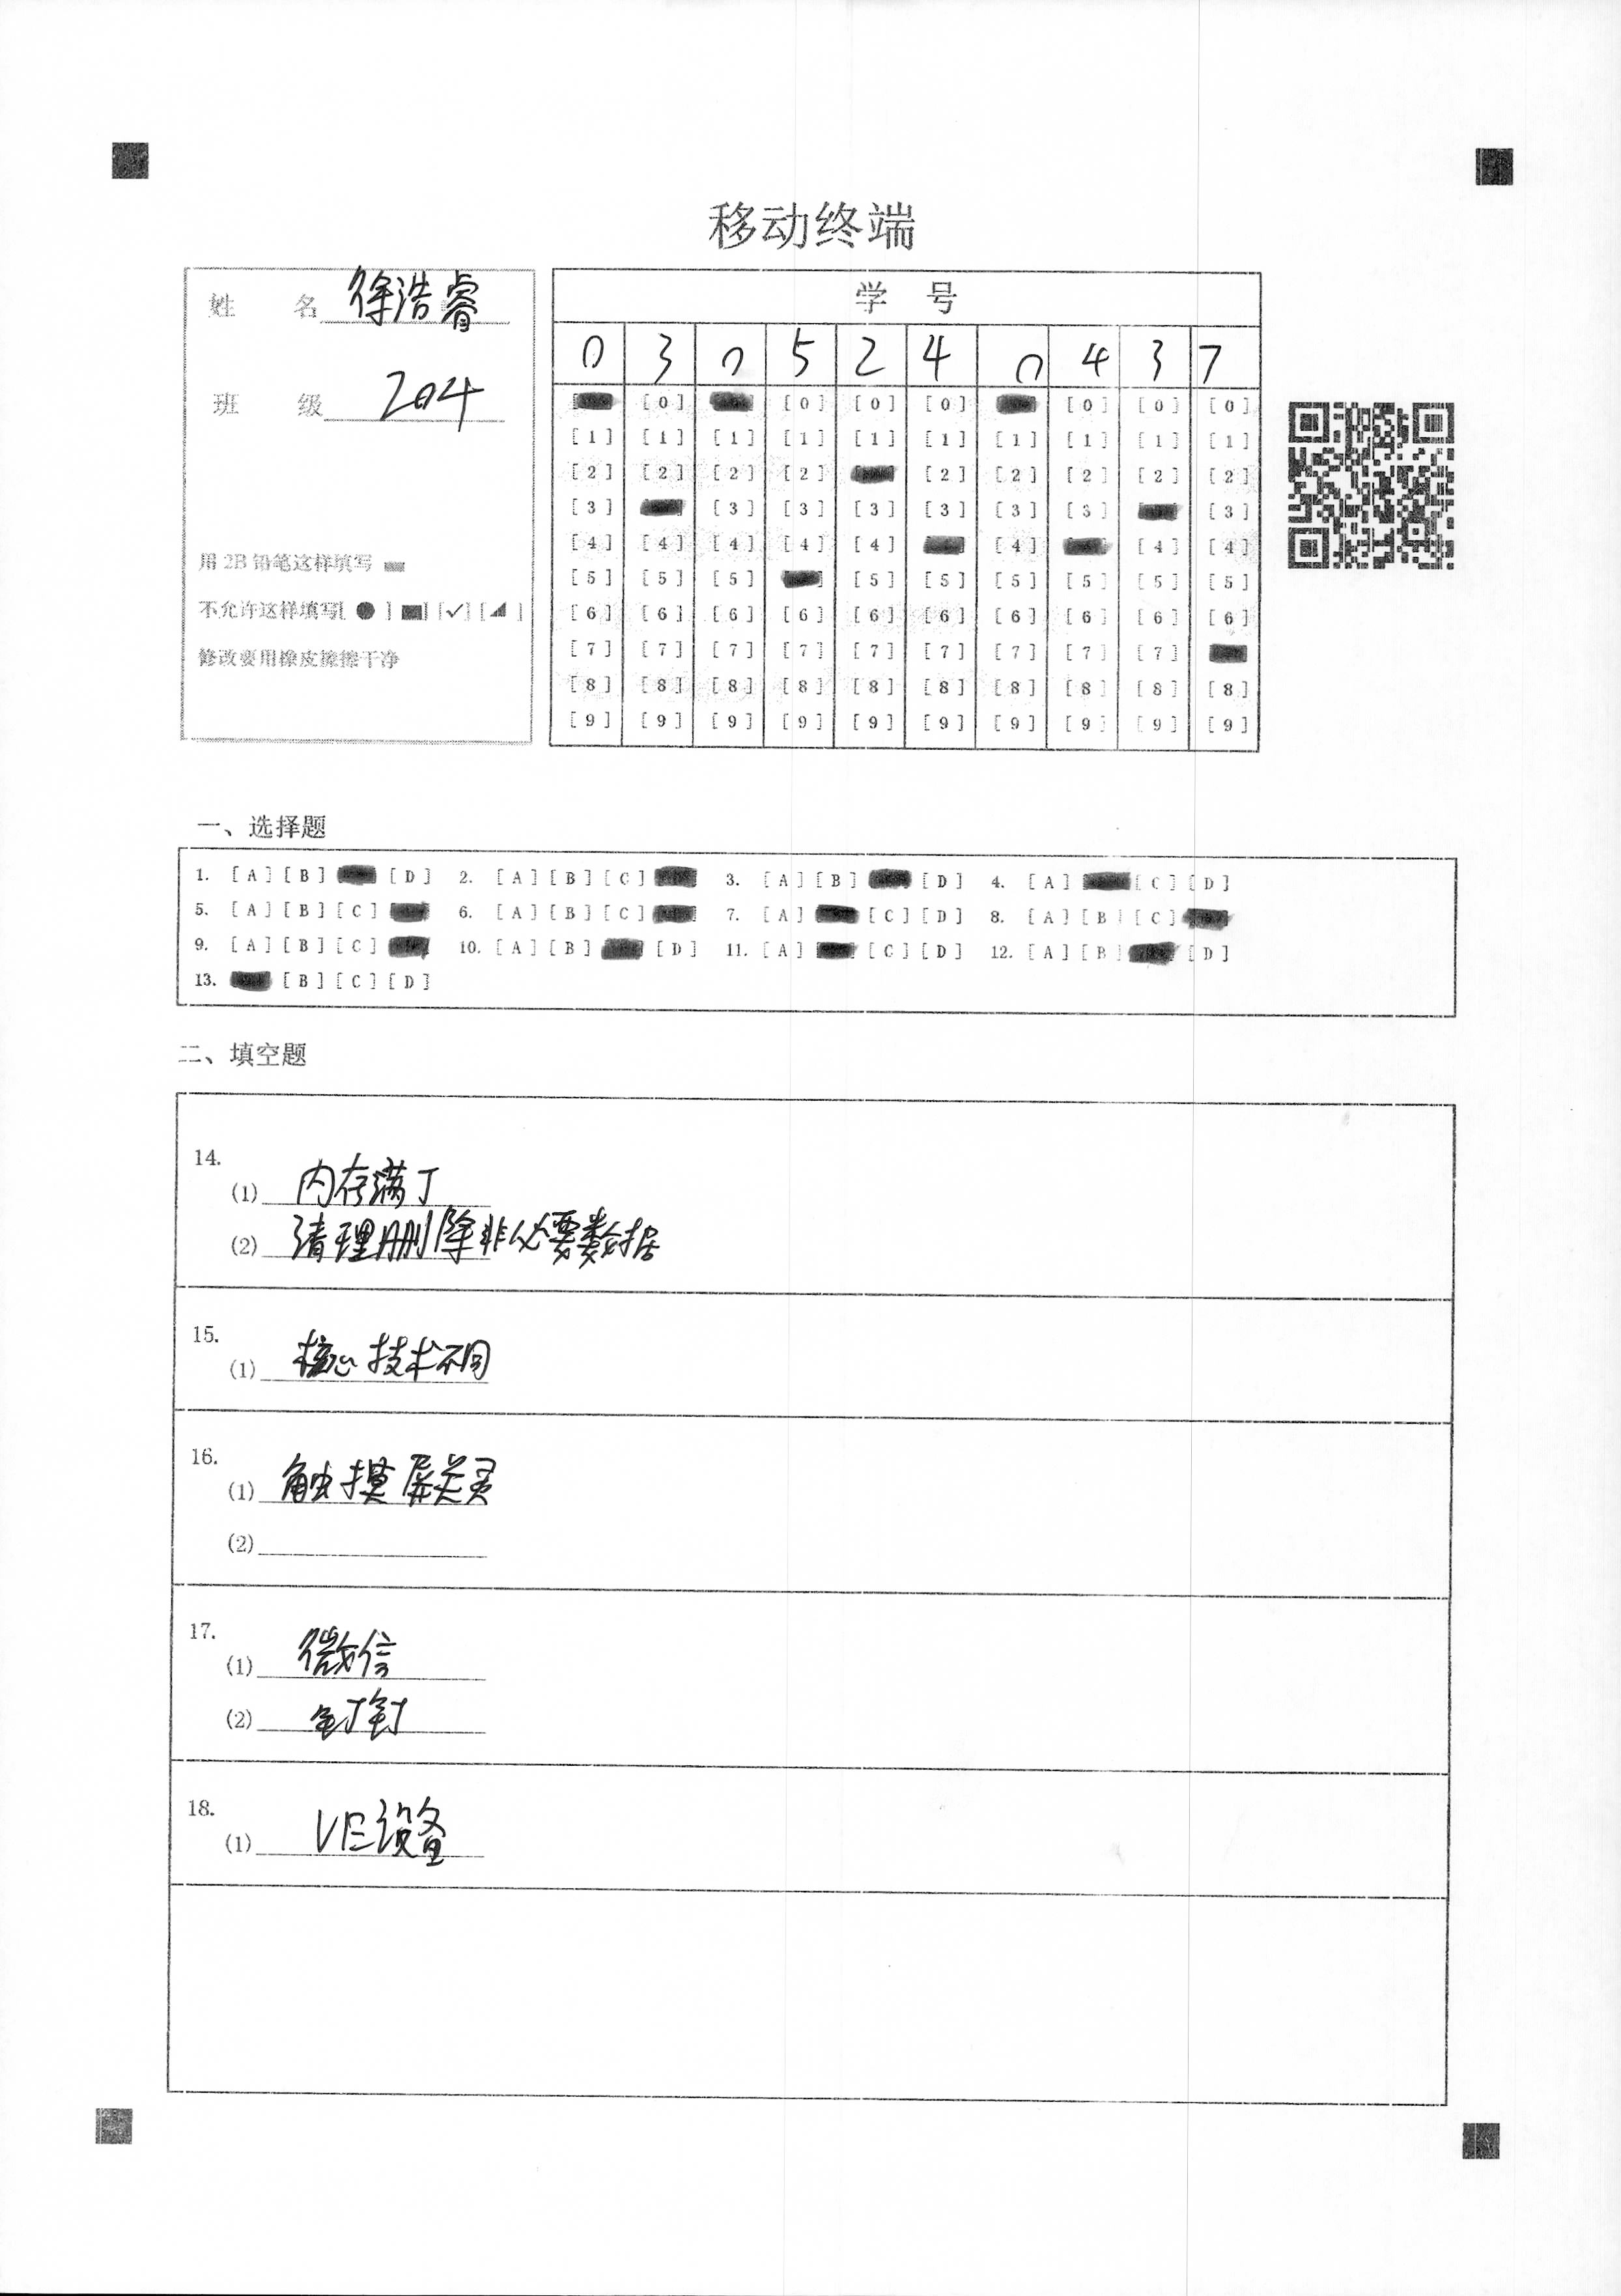 移动终端
姓 名 徐浩睿
班 级 204
用 2B 铅笔这样填写
不允许这样填写[ ● ] [■] [✓] [◢ ]
修改要用橡皮擦擦干净
学 号
0 3 0 5 2 4 0 4 3 7
[0] [0] [0] [0] [0] [0] [0]
[1] [1] [1] [1] [1] [1] [1] [1] [1] [1]
[2] [2] [2] [2] [2] [2] [2] [2] [2]
[3] [3] [3] [3] [3] [3] [3] [3]
[4] [4] [4] [4] [4] [4] [4] [4]
[5] [5] [5] [5] [5] [5] [5] [5] [5]
[6] [6] [6] [6] [6] [6] [6] [6] [6] [6]
[7] [7] [7] [7] [7] [7] [7] [7] [7]
[8] [8] [8] [8] [8] [8] [8] [8] [8] [8]
[9] [9] [9] [9] [9] [9] [9] [9] [9] [9]
一、选择题
1. [A] [B] [D] 2. [A] [B] [C] 3. [A] [B] [D] 4. [A] [C] [D]
5. [A] [B] [C] 6. [A] [B] [C] 7. [A] [C] [D] 8. [A] [B] [C]
9. [A] [B] [C] 10. [A] [B] [D] 11. [A] [C] [D] 12. [A] [B] [D]
13. [B] [C] [D]
二、填空题
14.
(1) 内存满了
(2) 清理删除非必要数据
15.
(1) 核心技术不同
16.
(1) 触摸屏失灵
(2)
17.
(1) 微信
(2) 钉钉
18.
(1) VE设备